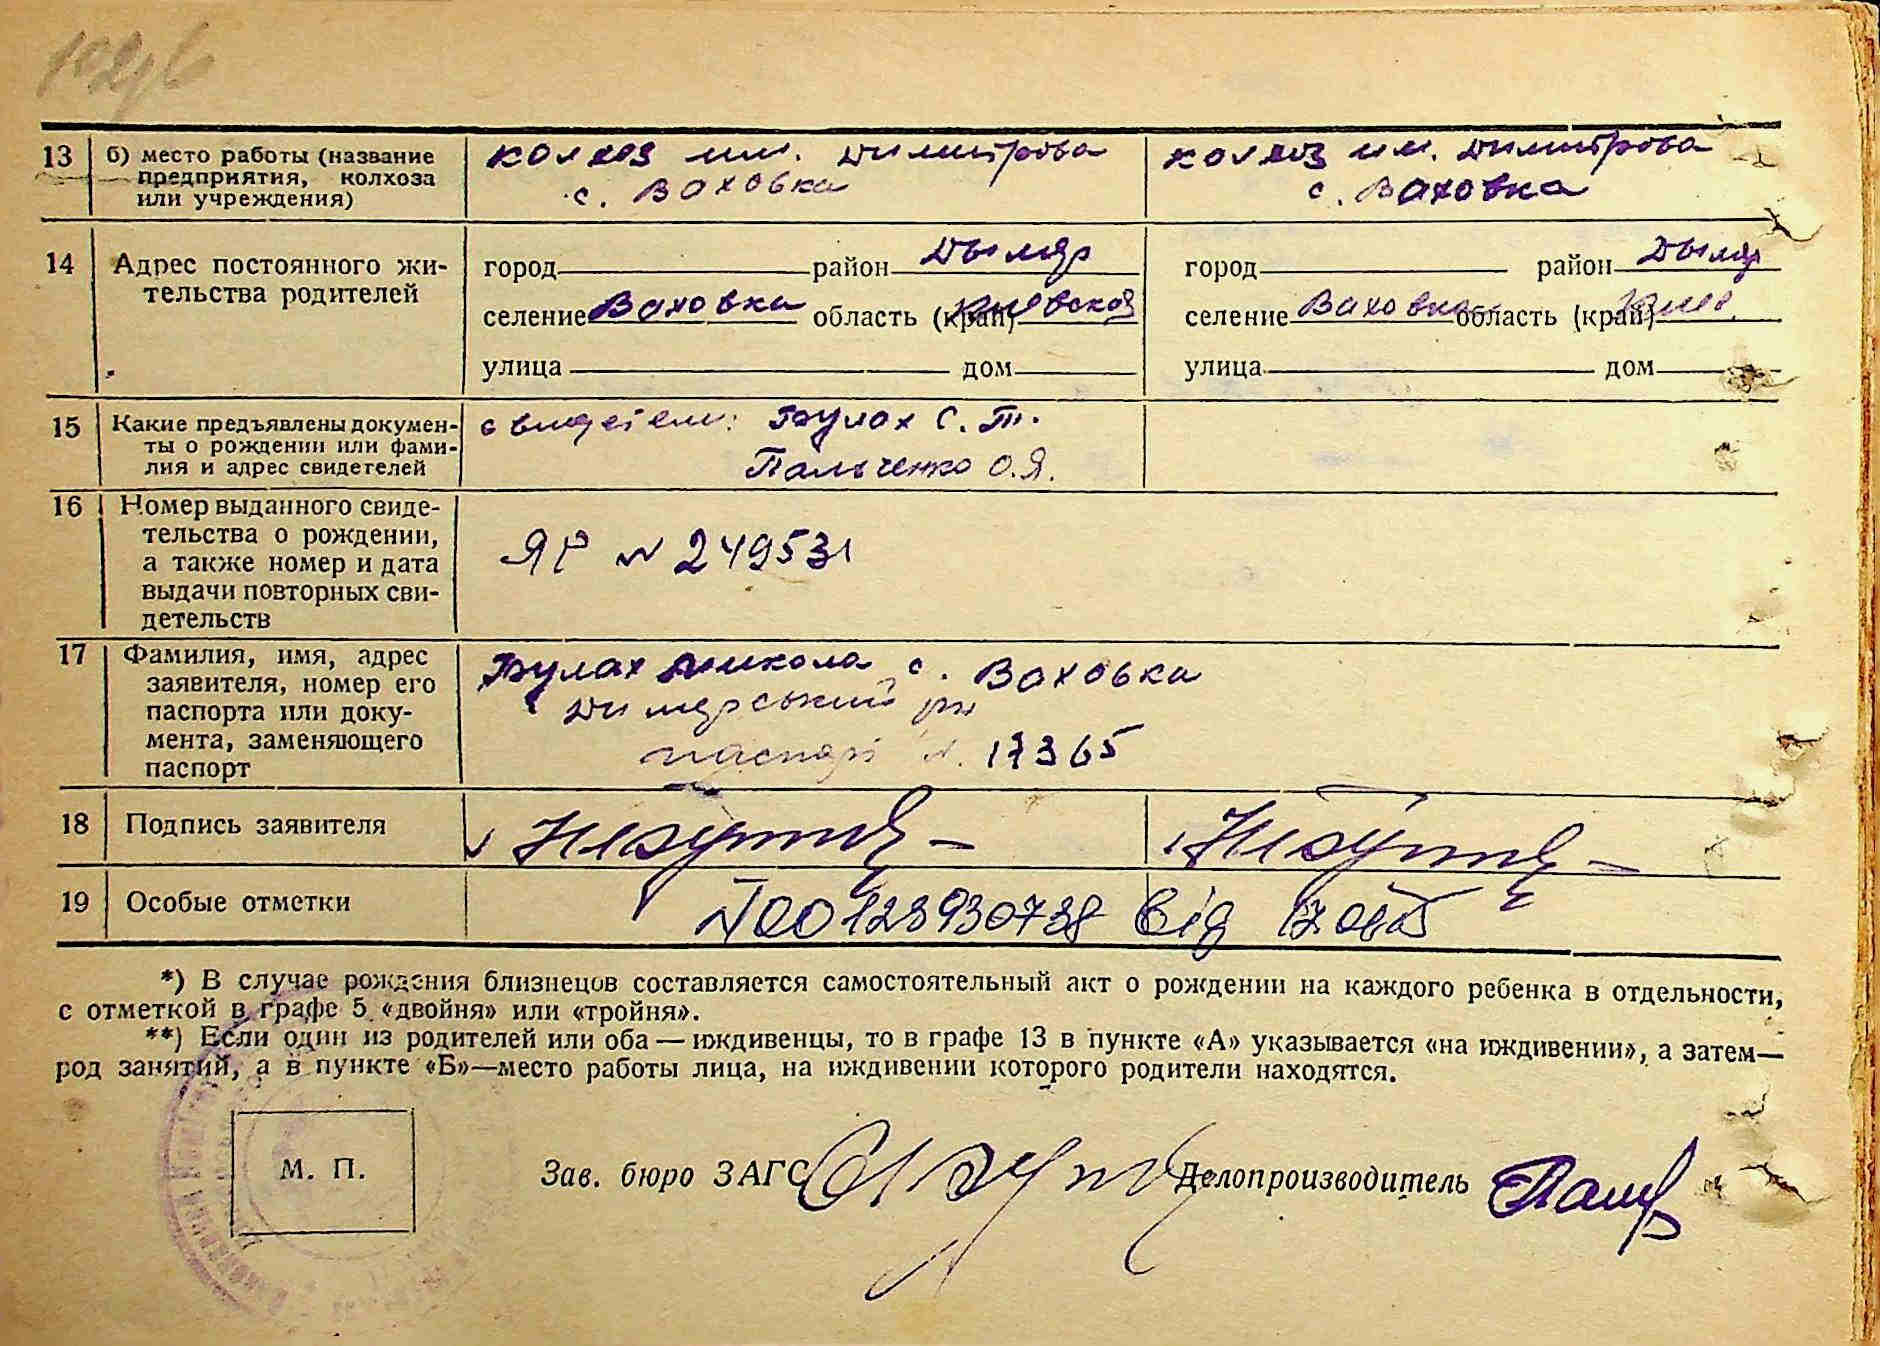 13 б) место работы (название предприятия, колхоза или учреждения)
колхоз им. Димитрова с. Ваховка
колхоз им. Димитрова с. Ваховка
14 Адрес постоянного жительства родителей
город район Дымер
селение Ваховка область (край) Киевской
улица дом
город район Дымер
селение Ваховка область (край) Киев.
улица дом
15 Какие предъявлены документы о рождении или фамилия и адрес свидетелей
свидетели: Булах С. Т.
Пальченко О. Я.
16 Номер выданного свидетельства о рождении, а также номер и дата выдачи повторных свидетельств
ЯР N 249531
17 Фамилия, имя, адрес заявителя, номер его паспорта или документа, заменяющего паспорт
Булах Микола с. Ваховка
Димерський рн
паспорт N. 17365
18 Подпись заявителя
19 Особые отметки
N00128930738 від
*) В случае рождения близнецов составляется самостоятельный акт о рождении на каждого ребенка в отдельности,
с отметкой в графе 5 «двойня» или «тройня».
**) Если один из родителей или оба — иждивенцы, то в графе 13 в пункте «А» указывается «на иждивении», а затем—
род занятий, а в пункте «Б»—место работы лица, на иждивении которого родители находятся.
М. П.
Зав. бюро ЗАГС Делопроизводитель